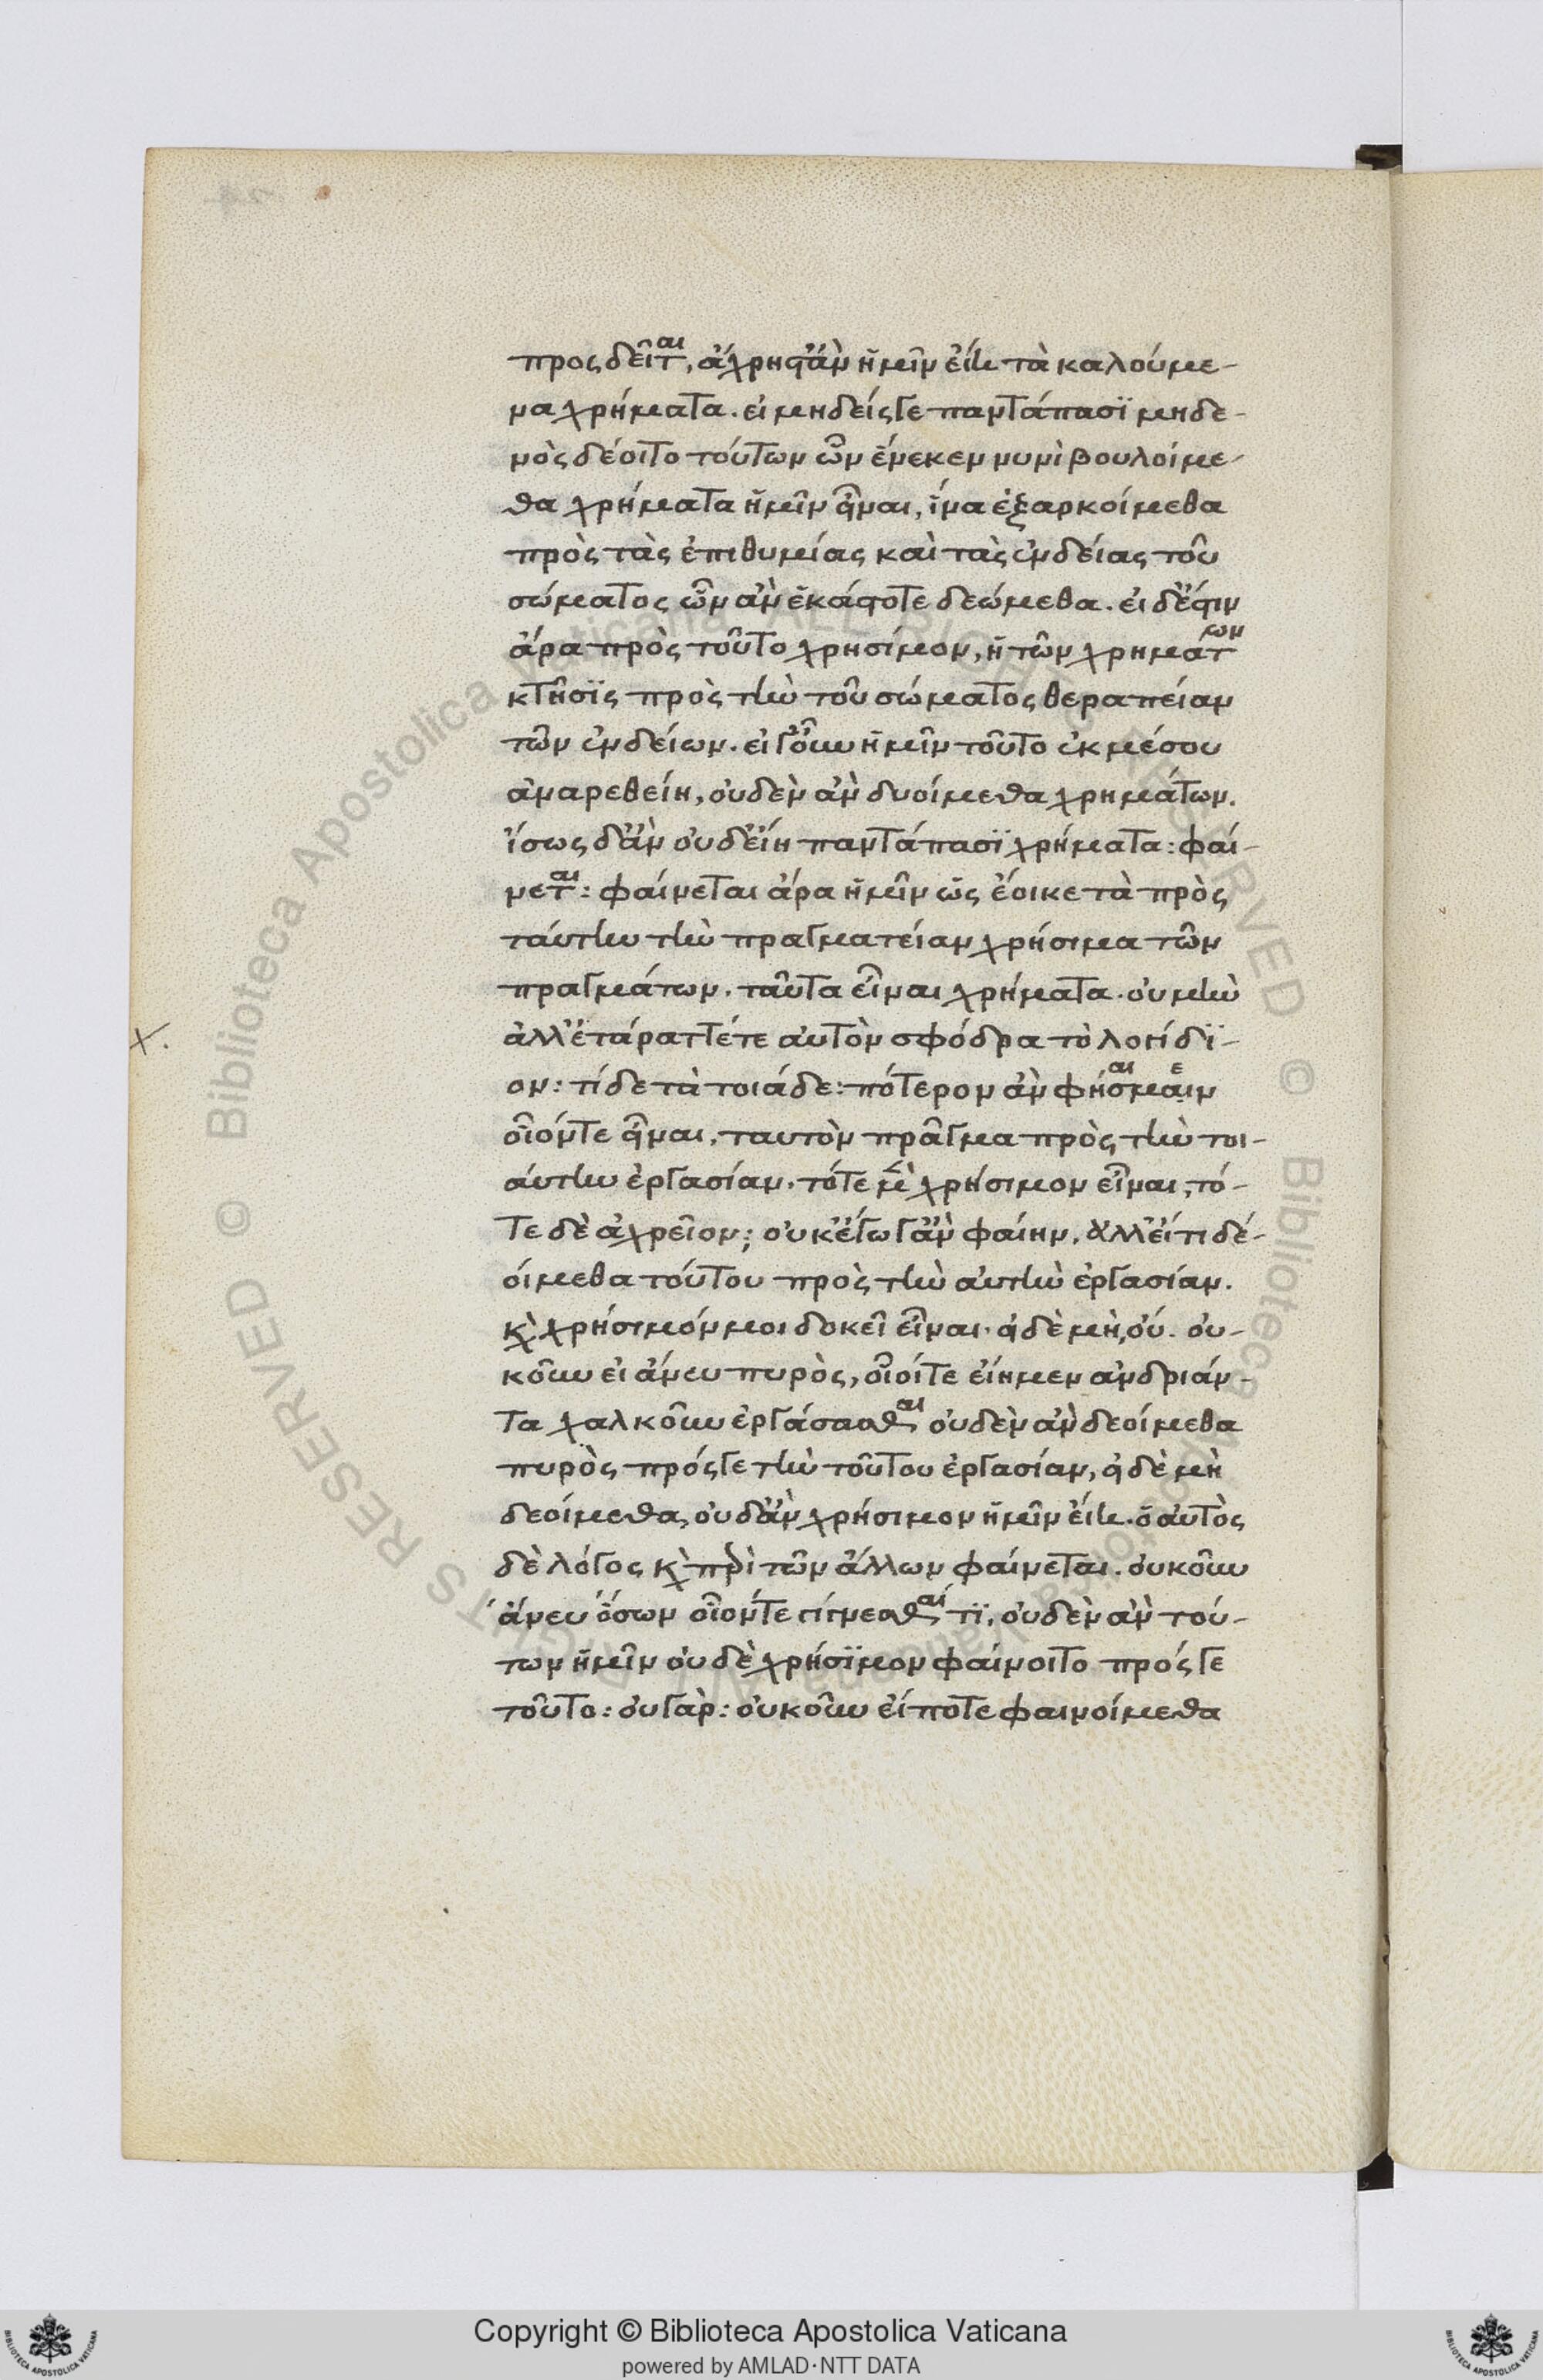 προςδεῖται, ἄχρηστ' ἂν ἡμῖν εἴη τὰ καλούμε-
να χρήματα. εἰ μηδείςγε παντάπασϊ μηδε-
νὸς δέοιτο τούτων ὧν ἕνεκεν νυνὶ βουλοίμε-
θα χρήματα ἡμῖν εἶναι, ἵνα ἐξαρκοίμεθα
πρὸς τὰς ἐπιθυμίας καὶ τὰς ἐνδείας τοῦ
σώματος ὧν ἂν ἑκάστοτε δεώμεθα. εἰ δ' ἔστιν
ἄρα πρὸς τοῦτο χρησίμον, ἡ τῶν χρημάτων
κτῆσϊς πρὸς τὴν τοῦ σώματος θεραπείαν
τῶν ἐνδείων. εἰ γοῦν ἡμῖν τοῦτο ἐκ μέσου
ἀναρεθείη, οὐδὲν ἂν δυοίμεθα χρημάτων.
ἴσως δ' ἂν οὐδ' εἴη παντάπασϊ χρήματα: φαί-
νεται: φαίνεται ἄρα ἡμῖν ὡς ἔοικε τὰ πρὸς
ταύτην τὴν πραγματείαν χρήσιμα τῶν
πραγμάτων. ταῦτα εἶναι χρήματα. οὐ μὴν
ἀλλ' ἐτάραττέτε αὐτὸν σφόδρα τὸ λογίδϊ-
ον: τί δε τὰ τοιάδε: πότερον ἂν φήσαιμεν
οἷόντε εἶναι, ταυτὸν πρᾶγμα πρὸς τὴν τοι-
αύτην ἐργασίαν. τότε μὲν χρήσιμον εἶναι, τό-
τε δὲ ἀχρεῖον; οὐκ ἔγωγ' ἂν φαίην. ἀλλ' εἴ τι δέ-
οίμεθα τούτου πρὸς τὴν αὐτὴν ἐργασίαν.
κὶ χρήσιμόν μοι δοκεῖ εἶναι. εἰ δὲ μὴ, οὔ. οὐ-
κοῦν εἰ ἄνευ πυρὸς, οἷοίτε εἴημεν ἀνδριάν-
τα χαλκοῦν ἐργάσασθαι οὐδὲν ἂν δεοίμεθα
πυρὸς πρόςγε τὴν τοῦτου ἐργασίαν, εἰ δὲ μὴ
δεοίμεθα, οὐδ' ἂν χρήσιμον ἡμῖν εἴη. ὁ αὐτὸς
δὲ λόγος κὶ πρὶ τῶν ἄλλων φαίνεται. οὐκοῦν
ἄνευ ὅσων οἷόντε γίγνεσθαί τϊ, οὐδὲν ἂν τού-
των ἡμῖν οὐδὲ χρήσϊμον φαίνοιτο πρόςγε
τοῦτο: οὐ γὰρ: οὐκοῦν εἴποτε φαινοίμεθα
Copyright © Biblioteca Apostolica Vaticana
powered by AMLAD·NTT DATA